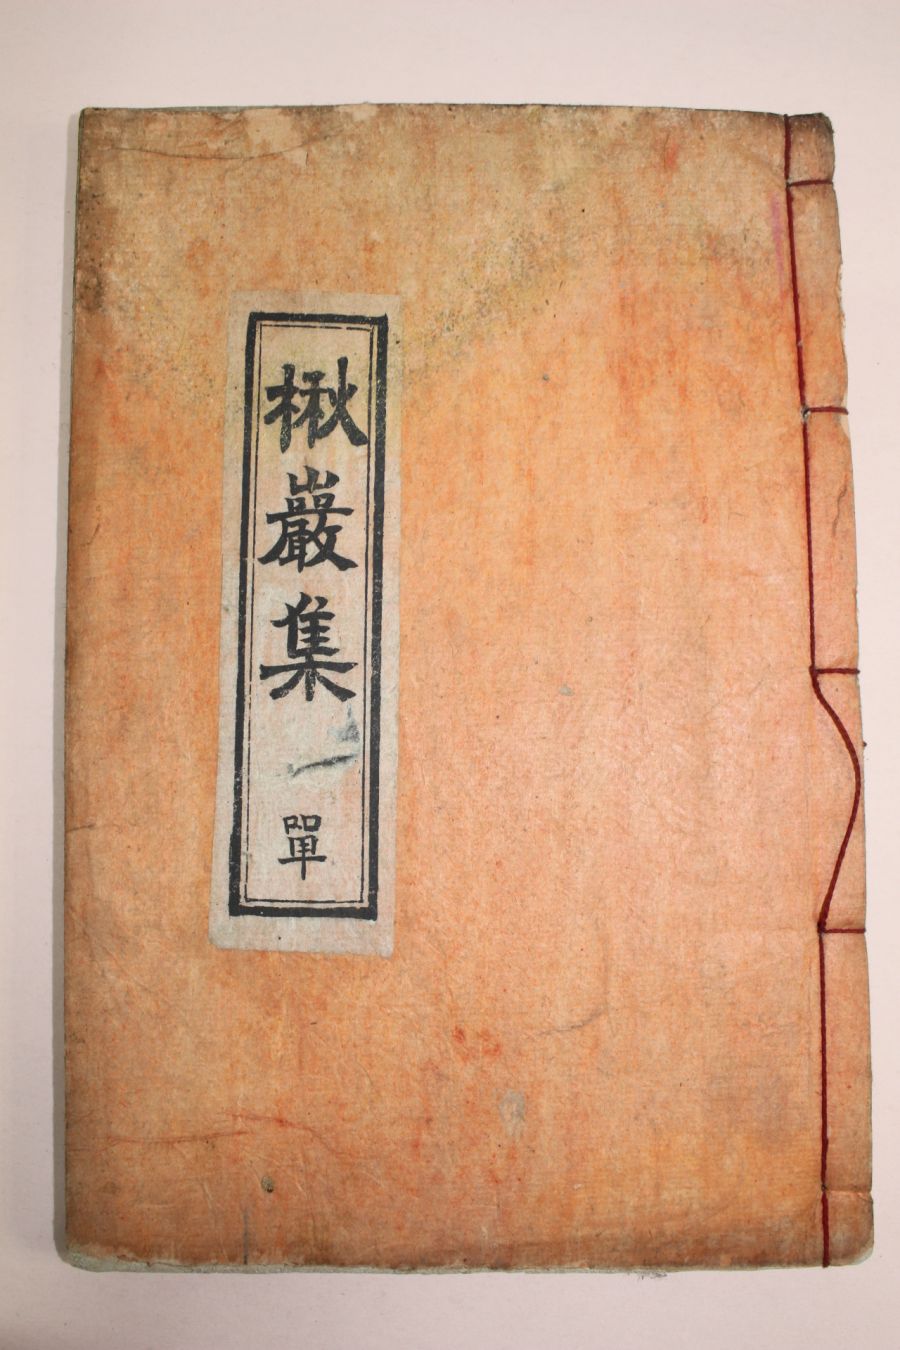 楸巖集 一 單